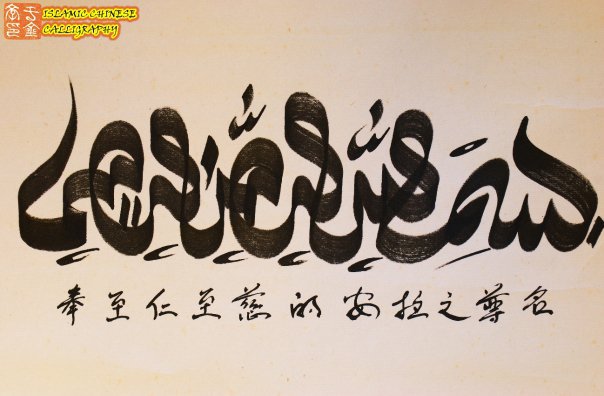 ISLAMIC CHINESE
CALLIGRAPHY
بسم الله الرحمن الرحيم
奉至仁至慈的安拉之尊名